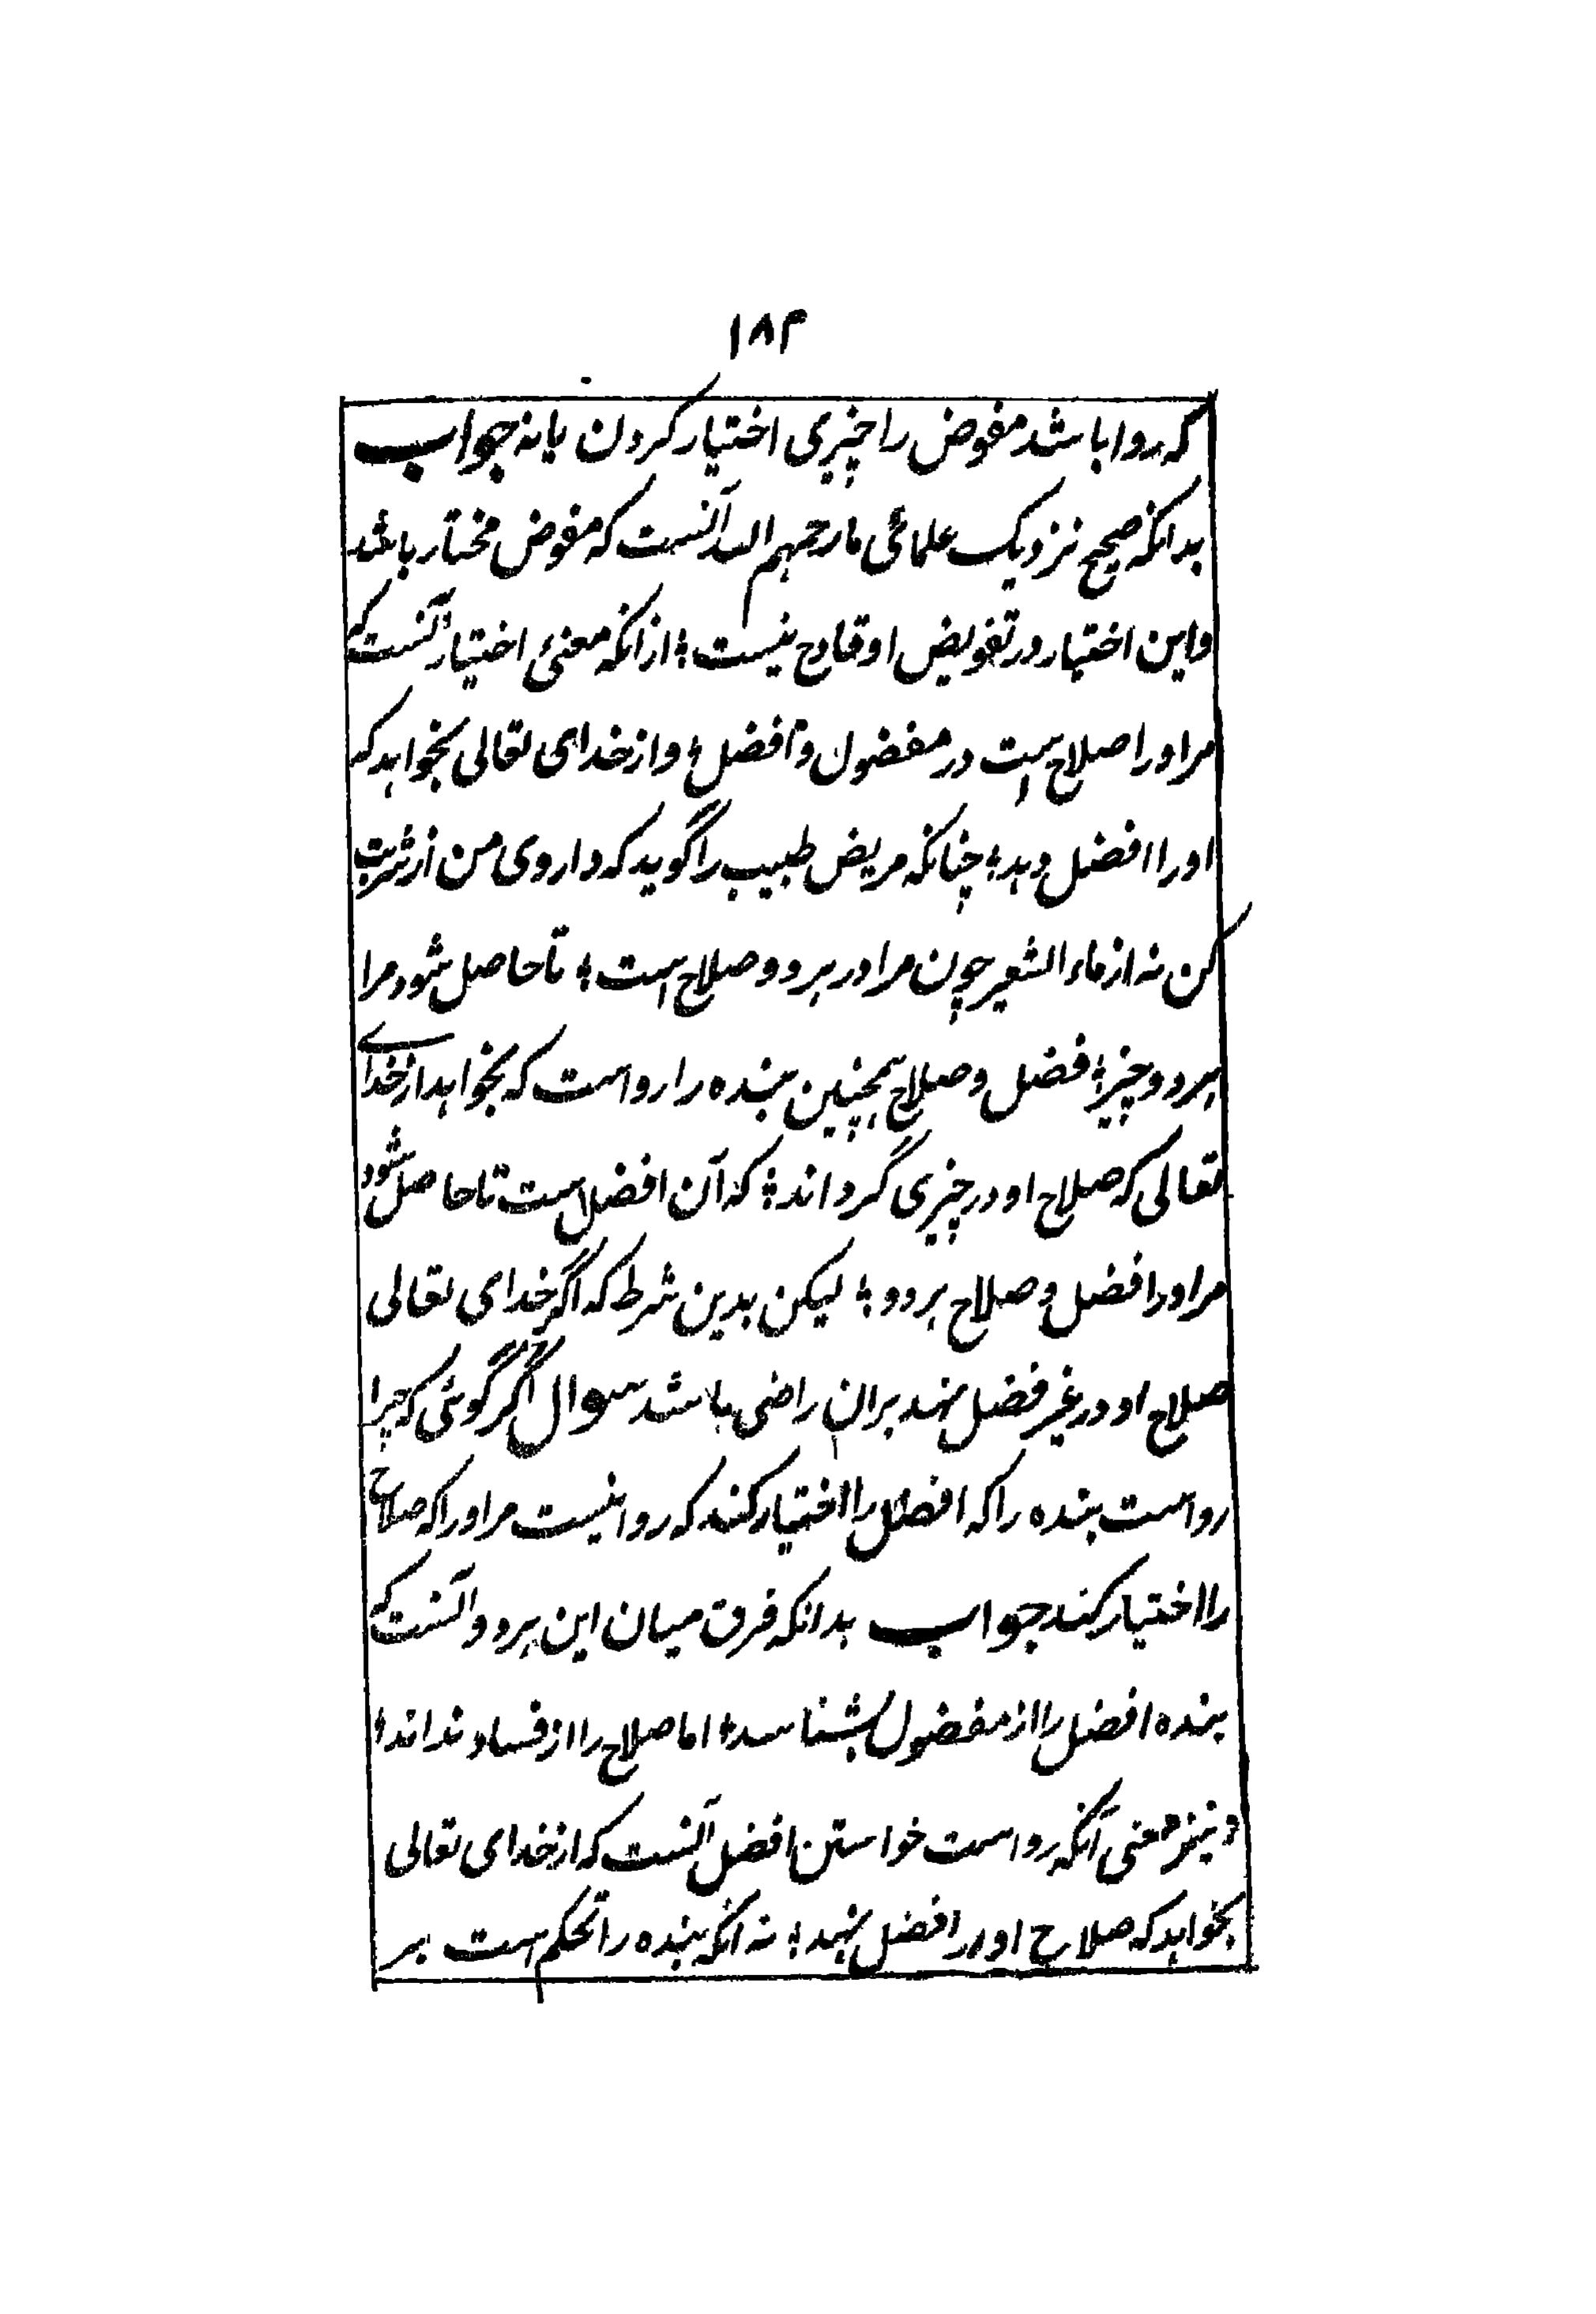 ۱۸۴
که روا باشد مفوض را چیزی اختیار کردن یا نه جواب
بدانکه صحیح نزدیک علمائی ما رحمهم الله آنست که مفوض مختار باشد
و این اختیار در تفویض او قادح نیست؛ از انکه معنیٔ اختیار آنست که
مر او را صلاح است در مفضول و افضل؛ و از خدای تعالی بخواهد که
او را افضل دهد؛ چنانکه مریض طبیب را گوید که داروی من از شربت
کن نه از ماء الشعیر چون مرا در هر دو صلاح است؛ تا حاصل شود مرا
هر دو چیز؛ فضل و صلاح همچنین بنده را رواست که بخواهد از خدای
تعالی که صلاح او در چیزی گرداند؛ که آن افضل است تا حاصل شود
مر او را فضل و صلاح هر دو؛ لیکن بدین شرط که اگر خدای تعالی
صلاح او در غیر فضل نهد بران راضی باشد سوال اگر گوئی که چرا
رواست بنده را که افضل را اختیار کند که روا نیست مر او را که صلاح
را اختیار کند جواب بدانکه فرق میان این هر دو آنست که
بنده افضل را از مفضول بشناسد؛ اما صلاح را از فساد نداند؛
و نیز معنی آنکه رواست خواستن افضل آنست که از خدای تعالی
بخواهد که صلاح او در افضل نهد؛ نه آنکه بنده را تحکم است بر